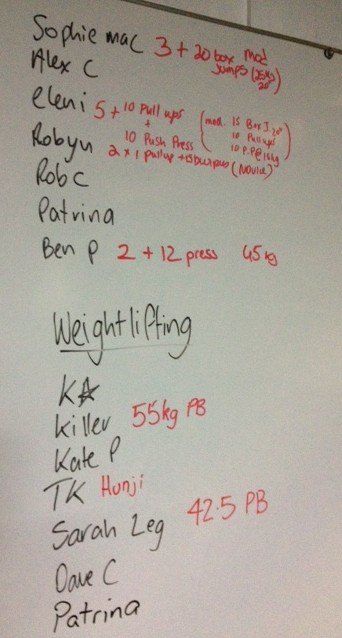 Sophie mac 3 + 20 box mod
jumps (25kg
20")
Alex C
eleni 5 + 10 Pull ups
+
10 Push Press
(mod. 15 Box J. 20"
10 Pullups
10 P.P@15kg)
Robyn 2 x 1 pullup +
(Novice)
Rob C
Patrina
Ben P 2 + 12 press 45kg
Weightlifting
KA
Killer 55kg PB
Kate P
TK Hunji
Sarah Leg 42.5 PB
Dave C
Patrina